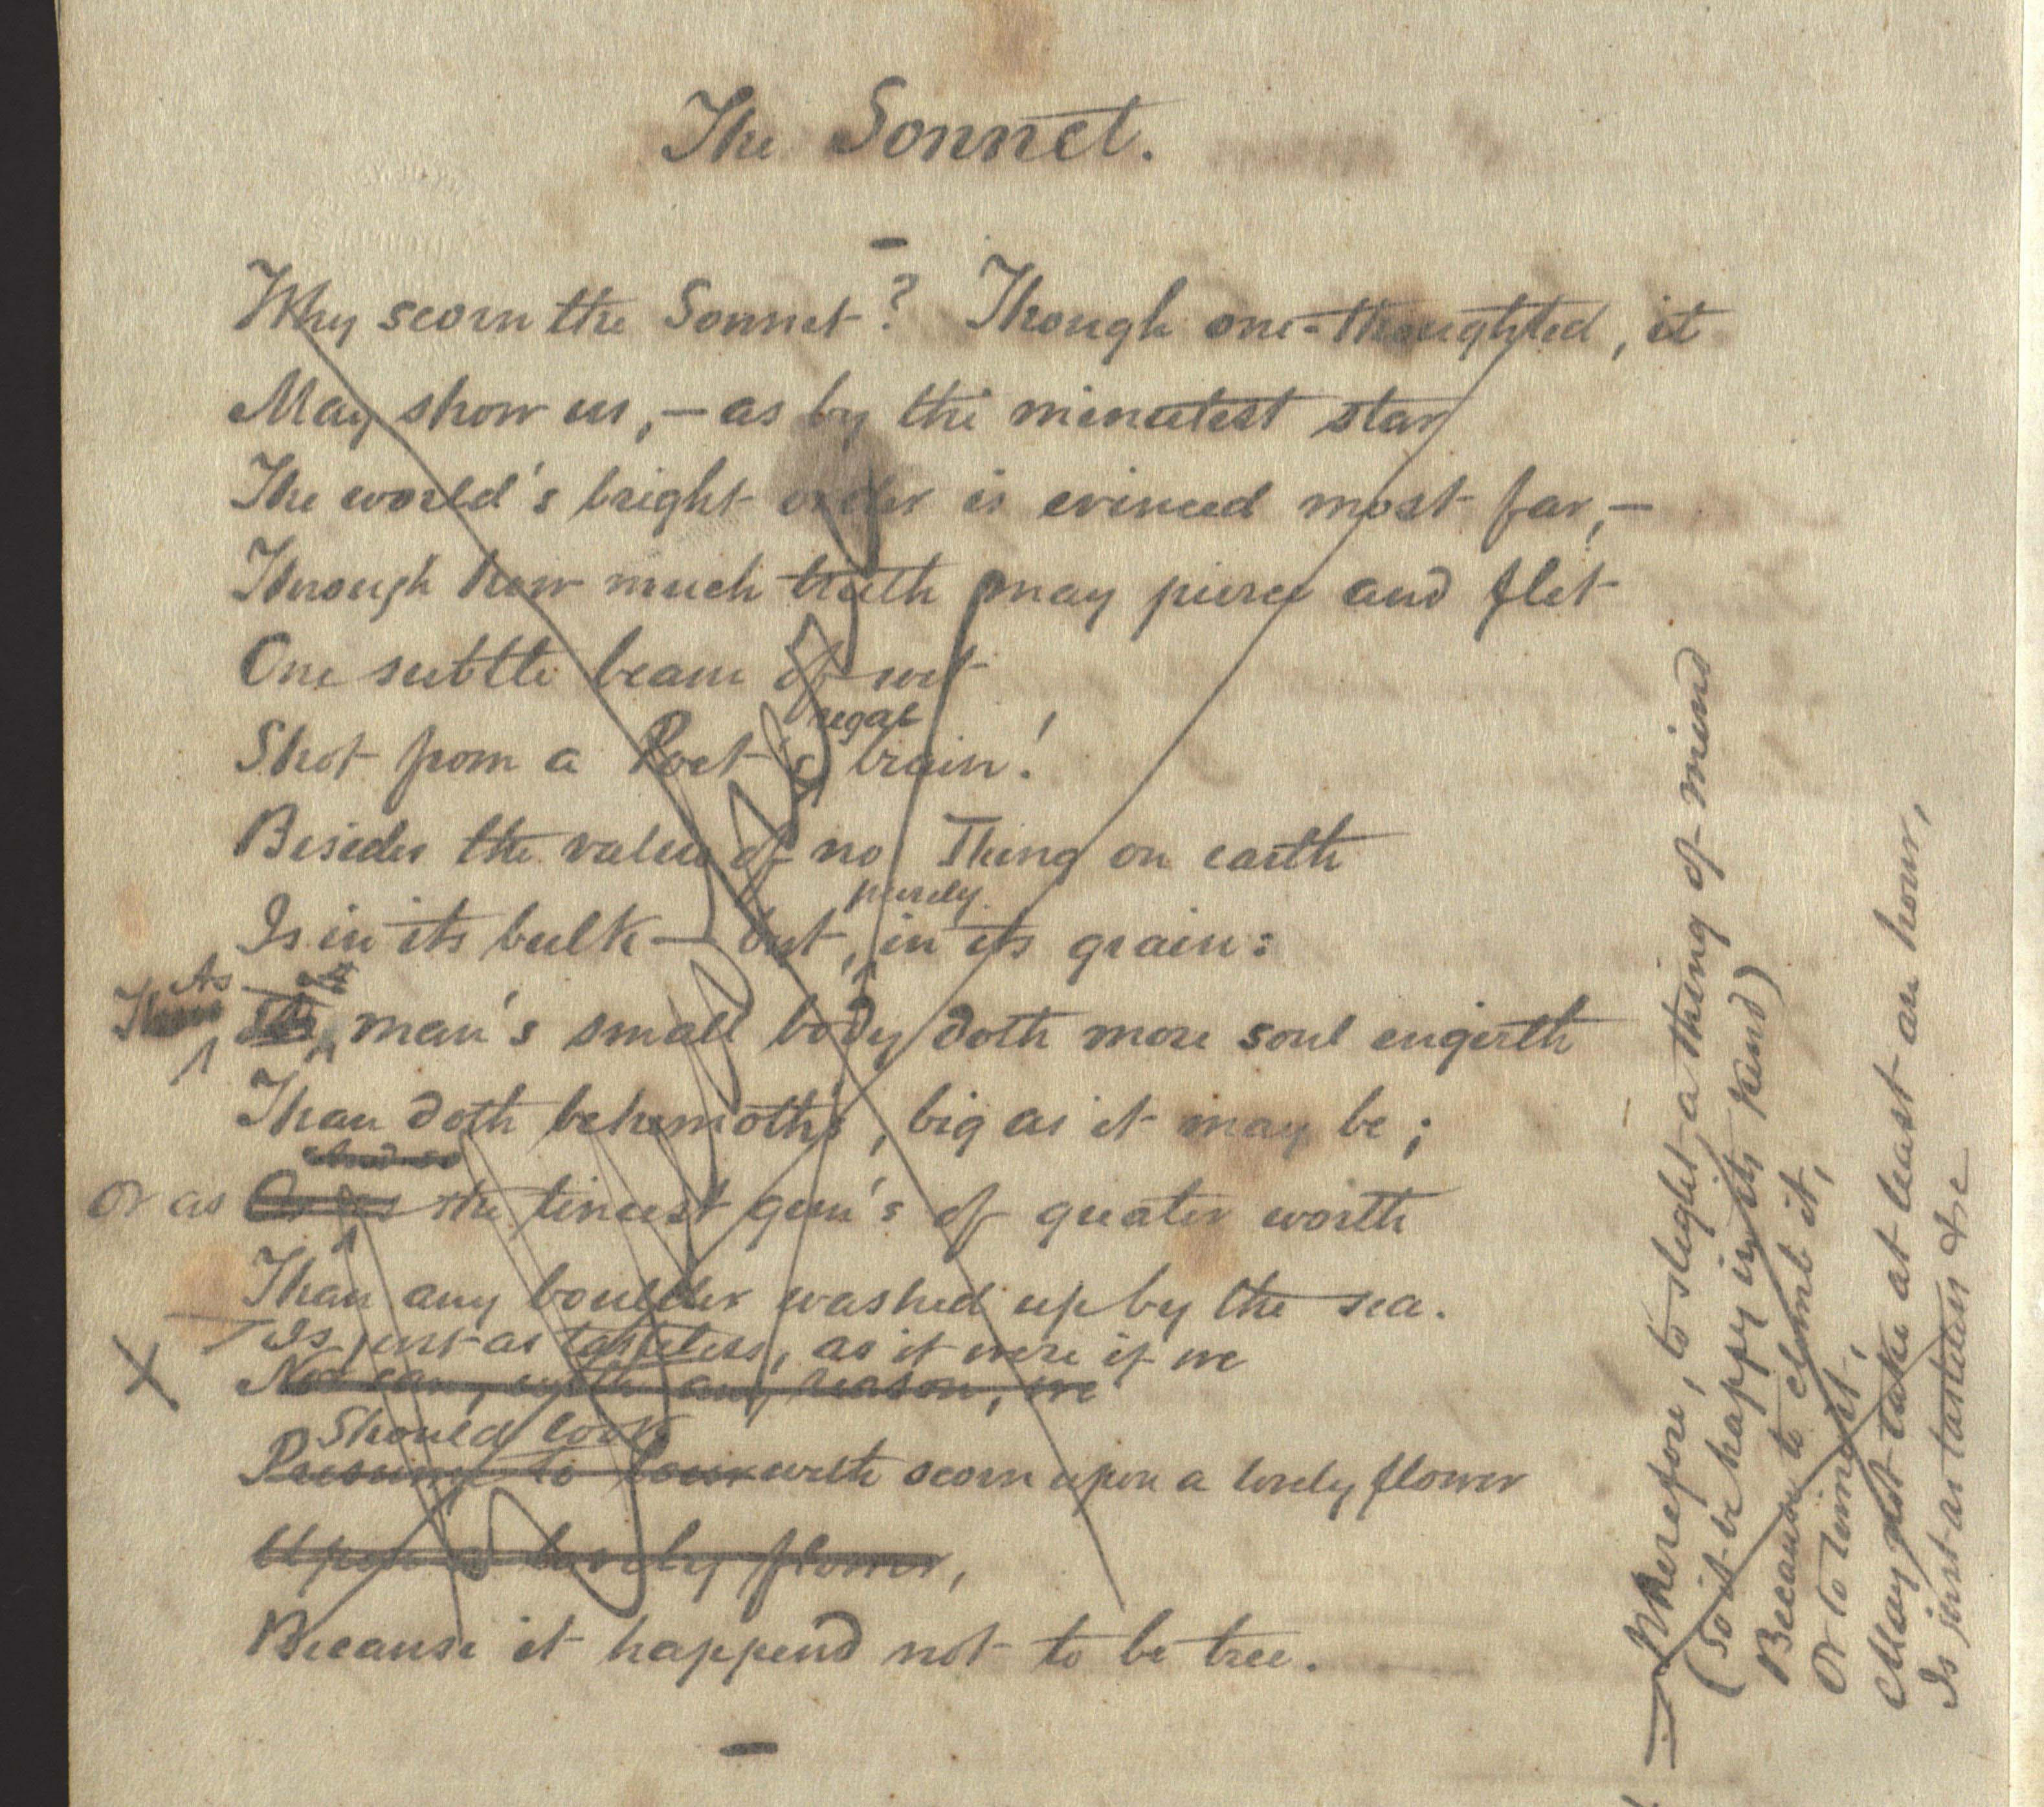 The Sonnet.
Why scorn the Sonnet? Though one-thoughted, it
May show us, — as by the minutest star
The world's bright order is evinced most far, —
Through how much truth may pierce and flit
One subtle beam of wit
regal
Shot from a Poet's brain!
Besides the value of no Thing on earth
purely
Is in its bulk — but, in its grain:
As
man's small body doth more soul engirth
Than doth behemoth's, big as it may be;
And so
Or as the tiniest gem's of greater worth
Than any boulder washed up by the sea.
Is just as tasteless, as it were if we
Nor can, with any reason, we
Should look
Presume to look with scorn upon a lovely flower
Upon a lovely flower,
Because it happend not to be tree.
Wherefore, to slight a thing of mind
(So it be happy in its kind)
Because to climb it,
Or to wing it,
May not take at least an hour,
Is just as tasteless &c